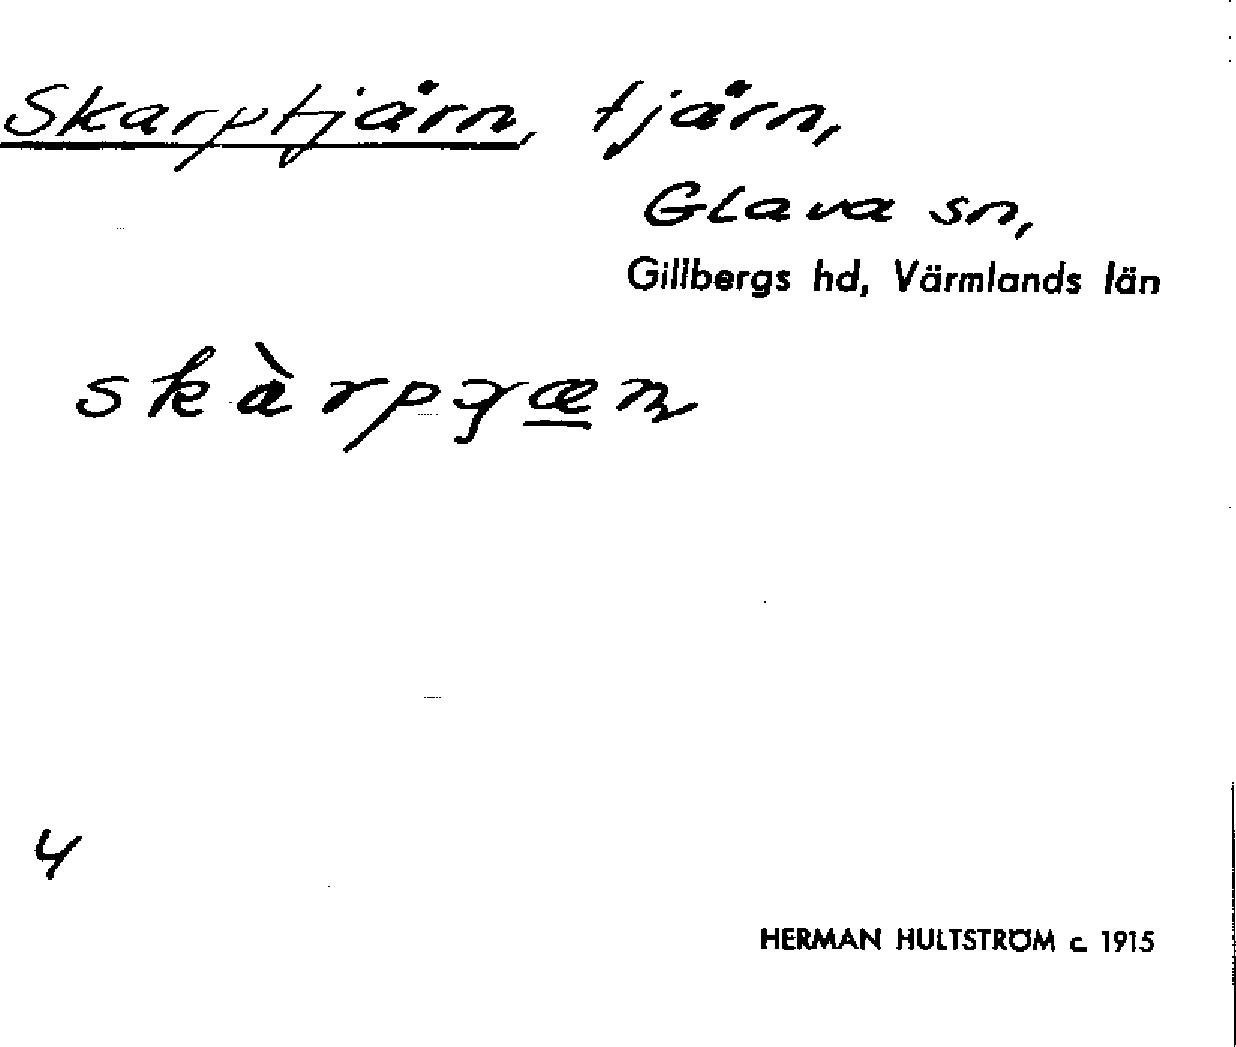 Skarptjärn, tjärn,
Glava sn,
Gillbergs hd, Värmlands län
4
HERMAN HULTSTRÖM c. 1915